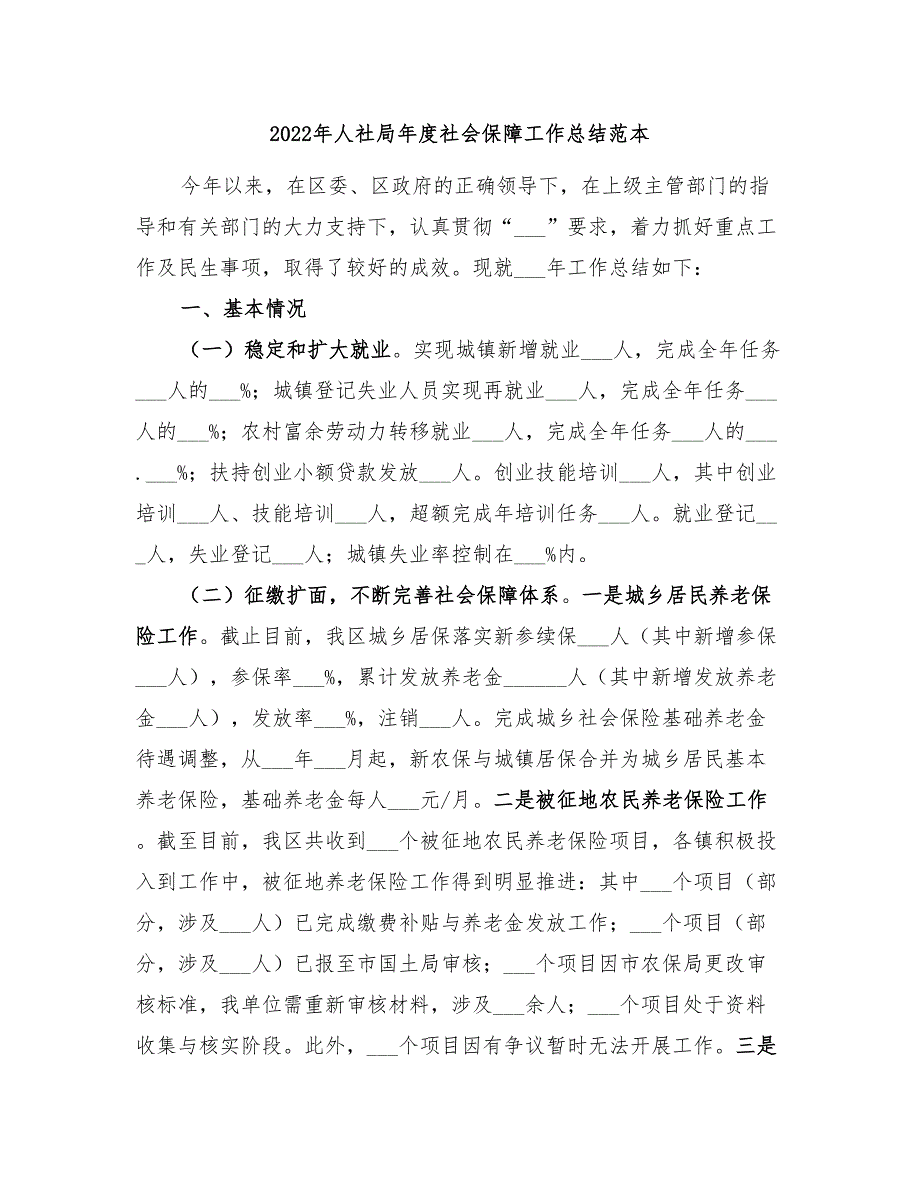 2022年人社局年度社会保障工作总结范本
今年以来，在区委、区政府的正确领导下，在上级主管部门的指
导和有关部门的大力支持下，认真贯彻“___”要求，着力抓好重点工
作及民生事项，取得了较好的成效。现就___年工作总结如下：
一、基本情况
（一）稳定和扩大就业。实现城镇新增就业___人，完成全年任务
___人的___%；城镇登记失业人员实现再就业___人，完成全年任务___
人的___%；农村富余劳动力转移就业___人，完成全年任务___人的___
.___%；扶持创业小额贷款发放___人。创业技能培训___人，其中创业
培训___人、技能培训___人，超额完成年培训任务___人。就业登记__
_人，失业登记___人；城镇失业率控制在___%内。
（二）征缴扩面，不断完善社会保障体系。一是城乡居民养老保
险工作。截止目前，我区城乡居保落实新参续保___人（其中新增参保
___人），参保率___%，累计发放养老金______人（其中新增发放养老
金___人），发放率___%，注销___人。完成城乡社会保险基础养老金
待遇调整，从___年___月起，新农保与城镇居保合并为城乡居民基本
养老保险，基础养老金每人___元/月。二是被征地农民养老保险工作
。截至目前，我区共收到___个被征地农民养老保险项目，各镇积极投
入到工作中，被征地养老保险工作得到明显推进：其中___个项目（部
分，涉及___人）已完成缴费补贴与养老金发放工作；___个项目（部
分，涉及___人）已报至市国土局审核；___个项目因市农保局更改审
核标准，我单位需重新审核材料，涉及___余人；___个项目处于资料
收集与核实阶段。此外，___个项目因有争议暂时无法开展工作。三是